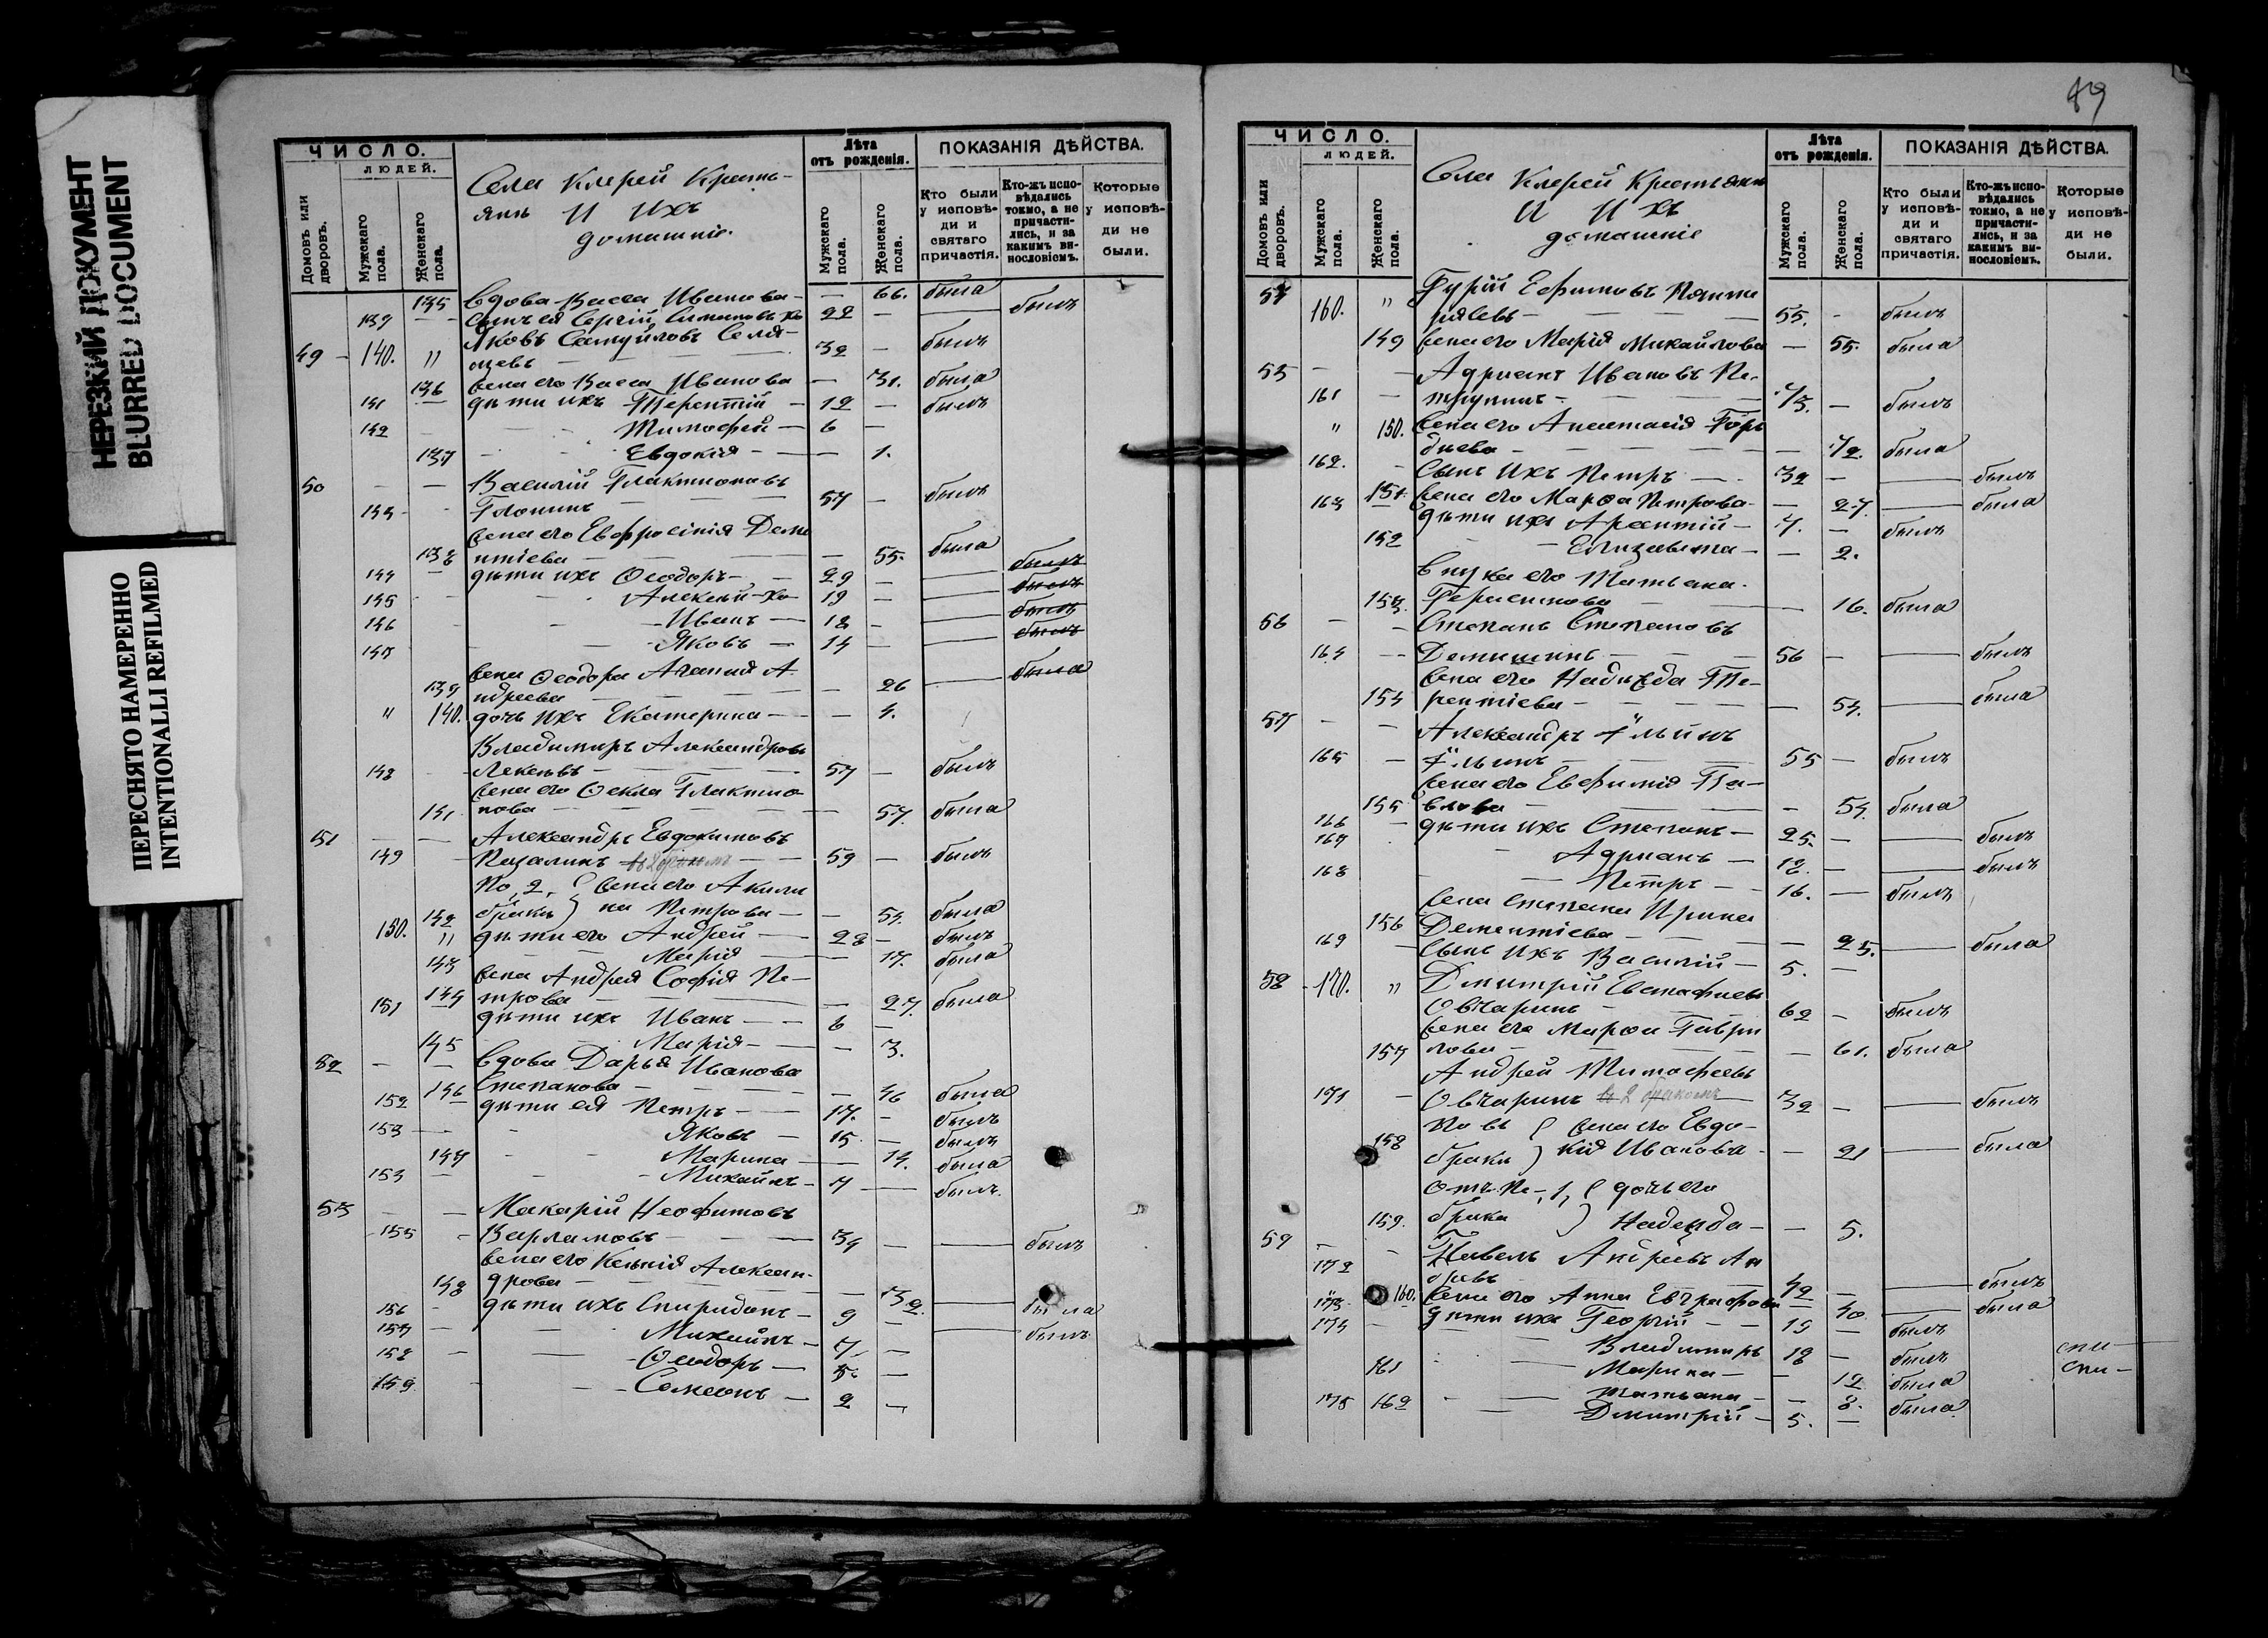 НЕРЕЗКИЙ ДОКУМЕНТ
BLURRED DOCUMENT
ПЕРЕСНЯТО НАМЕРЕННО
INTENTIONALLI REFILMED
ЧИСЛО.
ЛЮДЕЙ.
Домовъ или дворовъ.
Мужскаго пола.
Женскаго пола.
Села Клерей Кресть-
янъ И Ихъ
домашніе.
Лѣта
отъ рожденія.
Мужскаго пола.
Женскаго пола.
ПОКАЗАНІЯ ДѢЙСТВА.
Кто были у исповѣ-ди и святаго причастія.
Кто-жъ испо-вѣдались токмо, а не причасти-лись, и за какимъ ви-нословіемъ.
Которые у исповѣ-ди не были.
135 Вдова Васса Иванова — — 66. была
139 — сынъ ея Сергій 22 — — былъ
49 — 140. " Яковъ Самуйловъ Селя-
32 — былъ
136 Жена его Васса Иванова — 31. была
141 дѣти ихъ Терентій — 12 — былъ
142 Тимофей — 6 —
137 Евдокія — — 1.
50 — — Василій Галактіоновъ
143 57 — былъ
Жена его Евфросинія Деме
138 нтіева — — 55. была
144 — дѣти ихъ Ѳеодоръ — 29 — — былъ
145 Алексѣй 19 — — былъ
146 — Иванъ — 18 — — былъ
147 — Яковъ — 14 — — былъ
Жена Ѳеодора Агапія А
139 ндреева — — 26 — была
" 140. дочь ихъ Екатерина — — 4.
Владимиръ Александровъ
148 57 — былъ
Жена его Ѳекла Галактіо
141 нова — — 57. была
51 — — Александръ Евдокимовъ
149 59 — былъ
По 2, Жена его Акили
142 браку на Петрова — — 54. была
150. " дѣти его Андрей — 28 — былъ
143 — Марія — — 17. была
Жена Андрея Софія Пе-
144 трова — — 27. была
151 дѣти ихъ Иванъ — 6 —
145 — Марія — — 3.
52 — — Вдова Дарья Иванова
146 Степанова — — 46 была
152 дѣти ея Петръ — 17. — былъ
153 — Яковъ — 15 — былъ
147 Марина — — 14. была
154 — Михаилъ — 7 — былъ.
53 — — Макарій Неофитовъ
155 Варламовъ — 34 — — былъ
Жена его Ксенія Алексан-
148 дрова — — 32. — была
156 — дѣти ихъ Спиридонъ — 9 — — былъ
157 — Михаилъ — 7 —
158 — Ѳеодоръ — 5. —
159 — Семеонъ — 2 —
89
ЧИСЛО.
ЛЮДЕЙ.
Домовъ или дворовъ.
Мужскаго пола.
Женскаго пола.
Села Клерей Крестьянъ
И Ихъ
домашніе
Лѣта
отъ рожденія.
Мужскаго пола.
Женскаго пола.
ПОКАЗАНІЯ ДѢЙСТВА.
Кто были у исповѣ-ди и святаго причастія.
Кто-жъ испо-вѣдались токмо, а не причасти-лись, и за какимъ ви-нословіемъ.
Которые у исповѣ-ди не были.
54 Гурій Ефимовъ
160. " 55. — былъ
149 Жена его Марія Михайлова — 55. была
55 — — Адріанъ Ивановъ Пе-
161 — 75. — былъ
" 150. Жена его Анастасія Горъ
дѣева — — 72. была
162. — Сынъ ихъ Петръ — 32 — — былъ
151. Жена его Марѳа Петрова — 27. — была
163 дѣти ихъ 7. — былъ
152 — Елизавета — — 2.
внука его Татьана
153. 16. была
56 — — Степанъ Степановъ
164 — Демишинъ — 56 — — былъ
Жена его Надежда Те-
154 рентіева — — 54. — была
57 — — Александръ Ильинъ
165 — Ильинъ 55 — былъ
Жена его Евфимія Па-
155 влова — 54. была
166 — дѣти ихъ Степанъ — 25. — — былъ
167 Адріанъ — 18. — — былъ
168 — Петръ — 16. — былъ
Жена Степана Ирина
156 Дементіева — — 25. — была
169 — Сынъ ихъ Василій — 5. —
58 — 170. " Димитрій Евстафіевъ
Овчаринъ 62 — былъ
Жена его Марѳа Гаври
157 лова — — 61. была
Андрей Тимофеевъ
171 — Овчаринъ 2 бракомъ 32 — — былъ
По 2ъ Жена его Евдо-
158 браку кія Иванова — — 21 — была
Отъ 1, дочь его
159. брака Надежда — — 5.
59 — — Павелъ Андреевъ Ан
172 дреевъ 42 — — былъ
160. Жена его Анна Евграфова — 40 — была
173 — дѣти ихъ Георгій — 19 — былъ
174 — Владимиръ 18 — былъ
161 — Марина — — 12 была
162 — Татьана — — 8. была
175 — Димитрій — 5. —